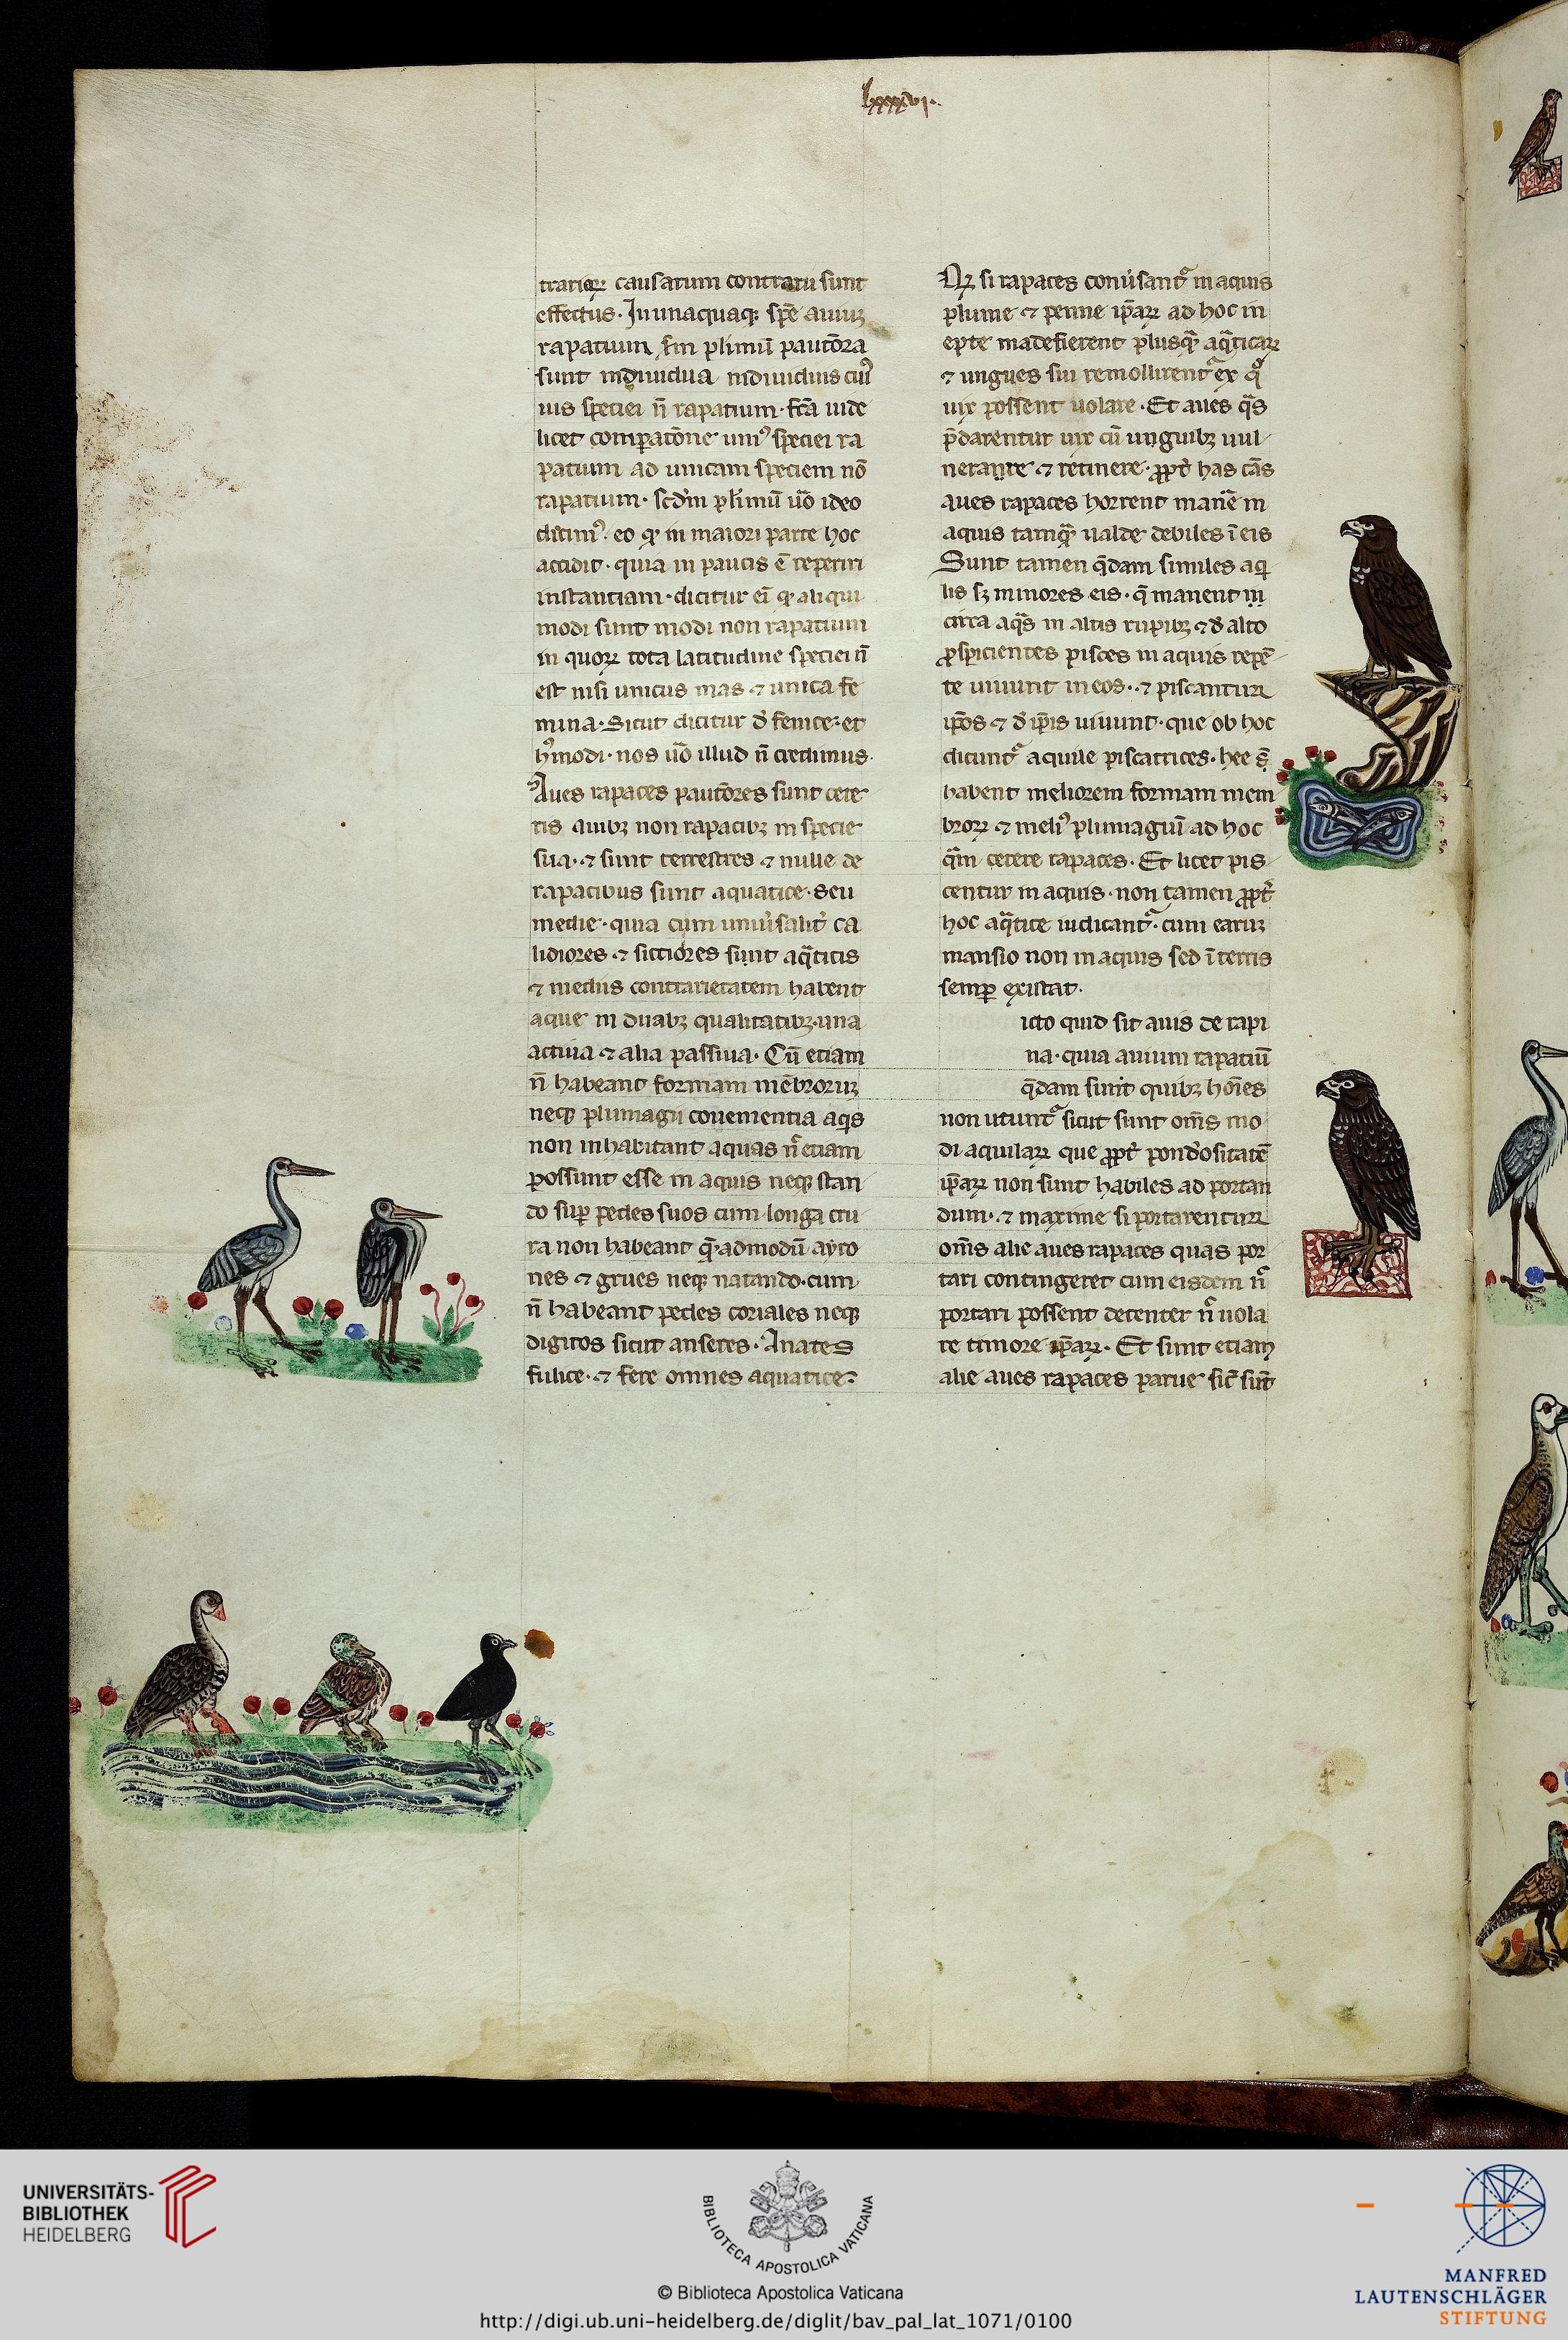 lxxxxvj.
trarioꝝ causatum contrarii sunt
effectus. In unaquaq; spē auiuꝫ
rapatium, sm̄ plimū pautōra
sunt indiuidua indiuiduis cui9
uis speciei n̄ rapatium. fcā uide
licet comparatōne uni9 speciei ra
patium ad unicam speciem nō
rapatium. scd'm plimū u͞o ideo
dicim9. eo qꝫ in maiori parte hoc
accidit. quia in paucis ē reperiri
instantiam. dicitur ei qꝫ aliqui
modi sunt modi non rapatium
in quoꝝ tota latitudine speciei n̄
est nisi unicus mas ⁊ unica fe
mina. Sicut dicitur d' fenice. et
h9modi. nos u͞o illud n̄ credimus.
Aues rapaces pautōres sunt cete
ris auibꝫ non rapacibꝫ in specie
sua. ⁊ sunt terrestres ⁊ nulle de
rapacibus sunt aquatice. seu
medie. quia cum uniu'salit' ca
lidiores ⁊ sicciores sunt aq̄ticis
⁊ mediis contrarietatem habent
aque in duabꝫ qualitatibꝫ. una
actiua ⁊ alia passiua. Cū etiam
n̄ habeant formam mēbroruꝫ
neqꝫ plumagii conuenientia aq̄s
non inhabitant aquas n̄ etiam
possunt esse in aquis neqꝫ stan
do suꝑ pedes suos cum longa cru
ra non habeant q̄admodū ayro
nes ⁊ grues neqꝫ natando. cum
n̄ habeant pedes coriales neqꝫ
digitos sicut anseres. Anates
fulice. ⁊ fere omnes aquatice.
Nꝫ si rapaces conu'sant̄ in aquis
plume ⁊ penne ip̄aꝝ ad hoc in
epte madefierent plusq̄ aq̄ticaꝝ
⁊ ungues sui remollirent̄ ex q°
uix possent uolare. Et aues q̄s
p̄darentur uix cū unguibꝫ uul
nerare ⁊ retinere. ꝓpt' has cās
aues rapaces horrent manē in
aquis tamq̄ ualde debiles ī eis
Sunt tamen q̄dam similes aq̄
lis sꝫ minores eis. q̄ manent in
circa aq̄s in altis rupibꝫ ⁊ d' alto
ꝓspicientes pisces in aquis repē
te uiuunt in eos. ⁊ piscantur
ip̄os ⁊ d' ip̄is uiuunt. que ob hoc
dicunt̄ aquile piscatrices. hee s̄
habent meliorem formam mem
broꝝ ⁊ meli9 plumagiū ad hoc
q̄m cetere rapaces. Et licet pis
centur in aquis. non tamen ꝓpt'
hoc aq̄tice iudicant̄. cum earuꝫ
mansio non in aquis sed ī terris
semꝑ existat.
icto quid sit auis de rapi
na. quia auium rapatiū
q̄dam sunt quibꝫ hoīes
non utunt̄ sicut sunt om̄s mo
di aquilaꝝ que ꝓpt' pond'ositatē
ip̄aꝝ non sunt habiles ad portan
dum. ⁊ maxime si portarentur
om̄s alie aues rapaces quas por
tari contingeret cum eisdem n̄
portari possent decenter n̄ uola
re timore ip̄aꝝ. Et sunt etiam
alie aues rapaces parue sic̄ sūt
UNIVERSITÄTS-
BIBLIOTHEK
HEIDELBERG
BIBLIOTECA APOSTOLICA VATICANA
© Biblioteca Apostolica Vaticana
http://digi.ub.uni-heidelberg.de/diglit/bav_pal_lat_1071/0100
MANFRED
LAUTENSCHLÄGER
STIFTUNG